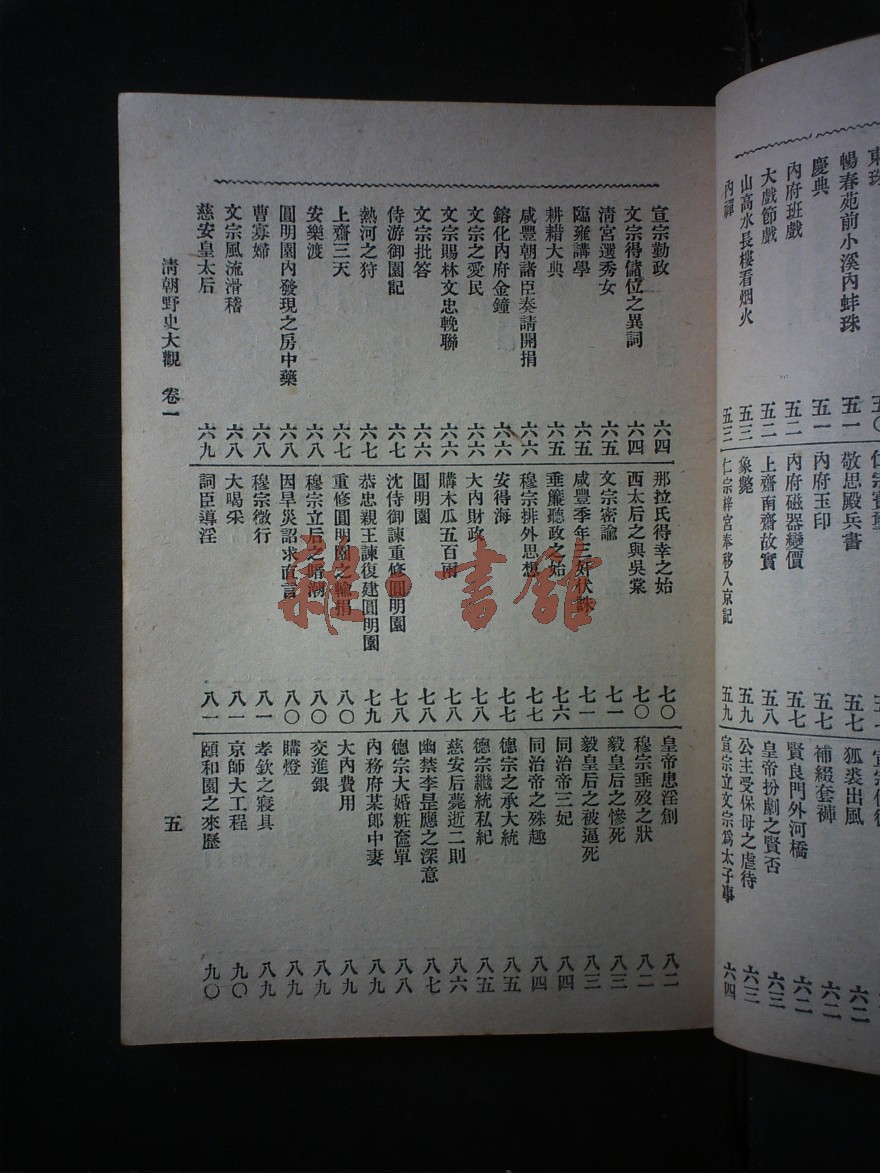 東珠 五〇
暢春苑前小溪內蚌珠 五一
慶典 五一
內府班戲 五二
大戲節戲 五二
山高水長樓看烟火 五三
內禪 五三
敬思殿兵書 五七
內府玉印 五七
內府磁器變價 五七
上齋南齋故實 五八
象斃 五九
仁宗梓宮奉移入京記 五九
狐裘出風 六二
補綴套褲 六二
賢良門外河橋 六二
皇帝扮劇之賢否 六三
公主受保母之虐待 六三
宣宗立文宗爲太子事 六四
宣宗勤政 六四
文宗得儲位之異詞 六四
清宮選秀女 六五
臨雍講學 六五
耕耤大典 六五
咸豐朝諸臣奏請開捐 六六
鎔化內府金鐘 六六
文宗之愛民 六六
文宗賜林文忠輓聯 六六
文宗批答 六六
侍游御園記 六七
熱河之狩 六七
上齋三天 六七
安樂渡 六八
圓明園內發現之房中藥 六八
曹寡婦 六八
文宗風流滑稽 六八
慈安皇太后 六九
那拉氏得幸之始 七〇
西太后之與吳棠 七〇
文宗密諭 七一
咸豐季年三奸伏誅 七一
垂簾聽政之始 七六
穆宗排外思想 七七
安得海 七七
大內財政 七八
購木瓜五百兩 七八
圓明園 七八
沈侍御諫重修圓明園 七八
恭忠親王諫復建圓明園 七九
重修圓明園之輸捐 八〇
穆宗立后之暗潮 八〇
因旱災詔求直言 八〇
穆宗微行 八一
大喝采 八一
詞臣導淫 八一
皇帝患淫創 八二
穆宗垂歿之狀 八二
毅皇后之慘死 八三
毅皇后之被逼死 八三
同治帝三妃 八四
同治帝之殊趣 八四
德宗之承大統 八五
德宗繼統私紀 八五
慈安后薨逝二則 八六
幽禁李昰應之深意 八七
德宗大婚粧奩單 八八
內務府某郎中妻 八九
大內費用 八九
交進銀 八九
購燈 八九
孝欽之寢具 八九
京師大工程 九〇
頤和園之來歷 九〇
清朝野史大觀 卷一
五
雜·書館